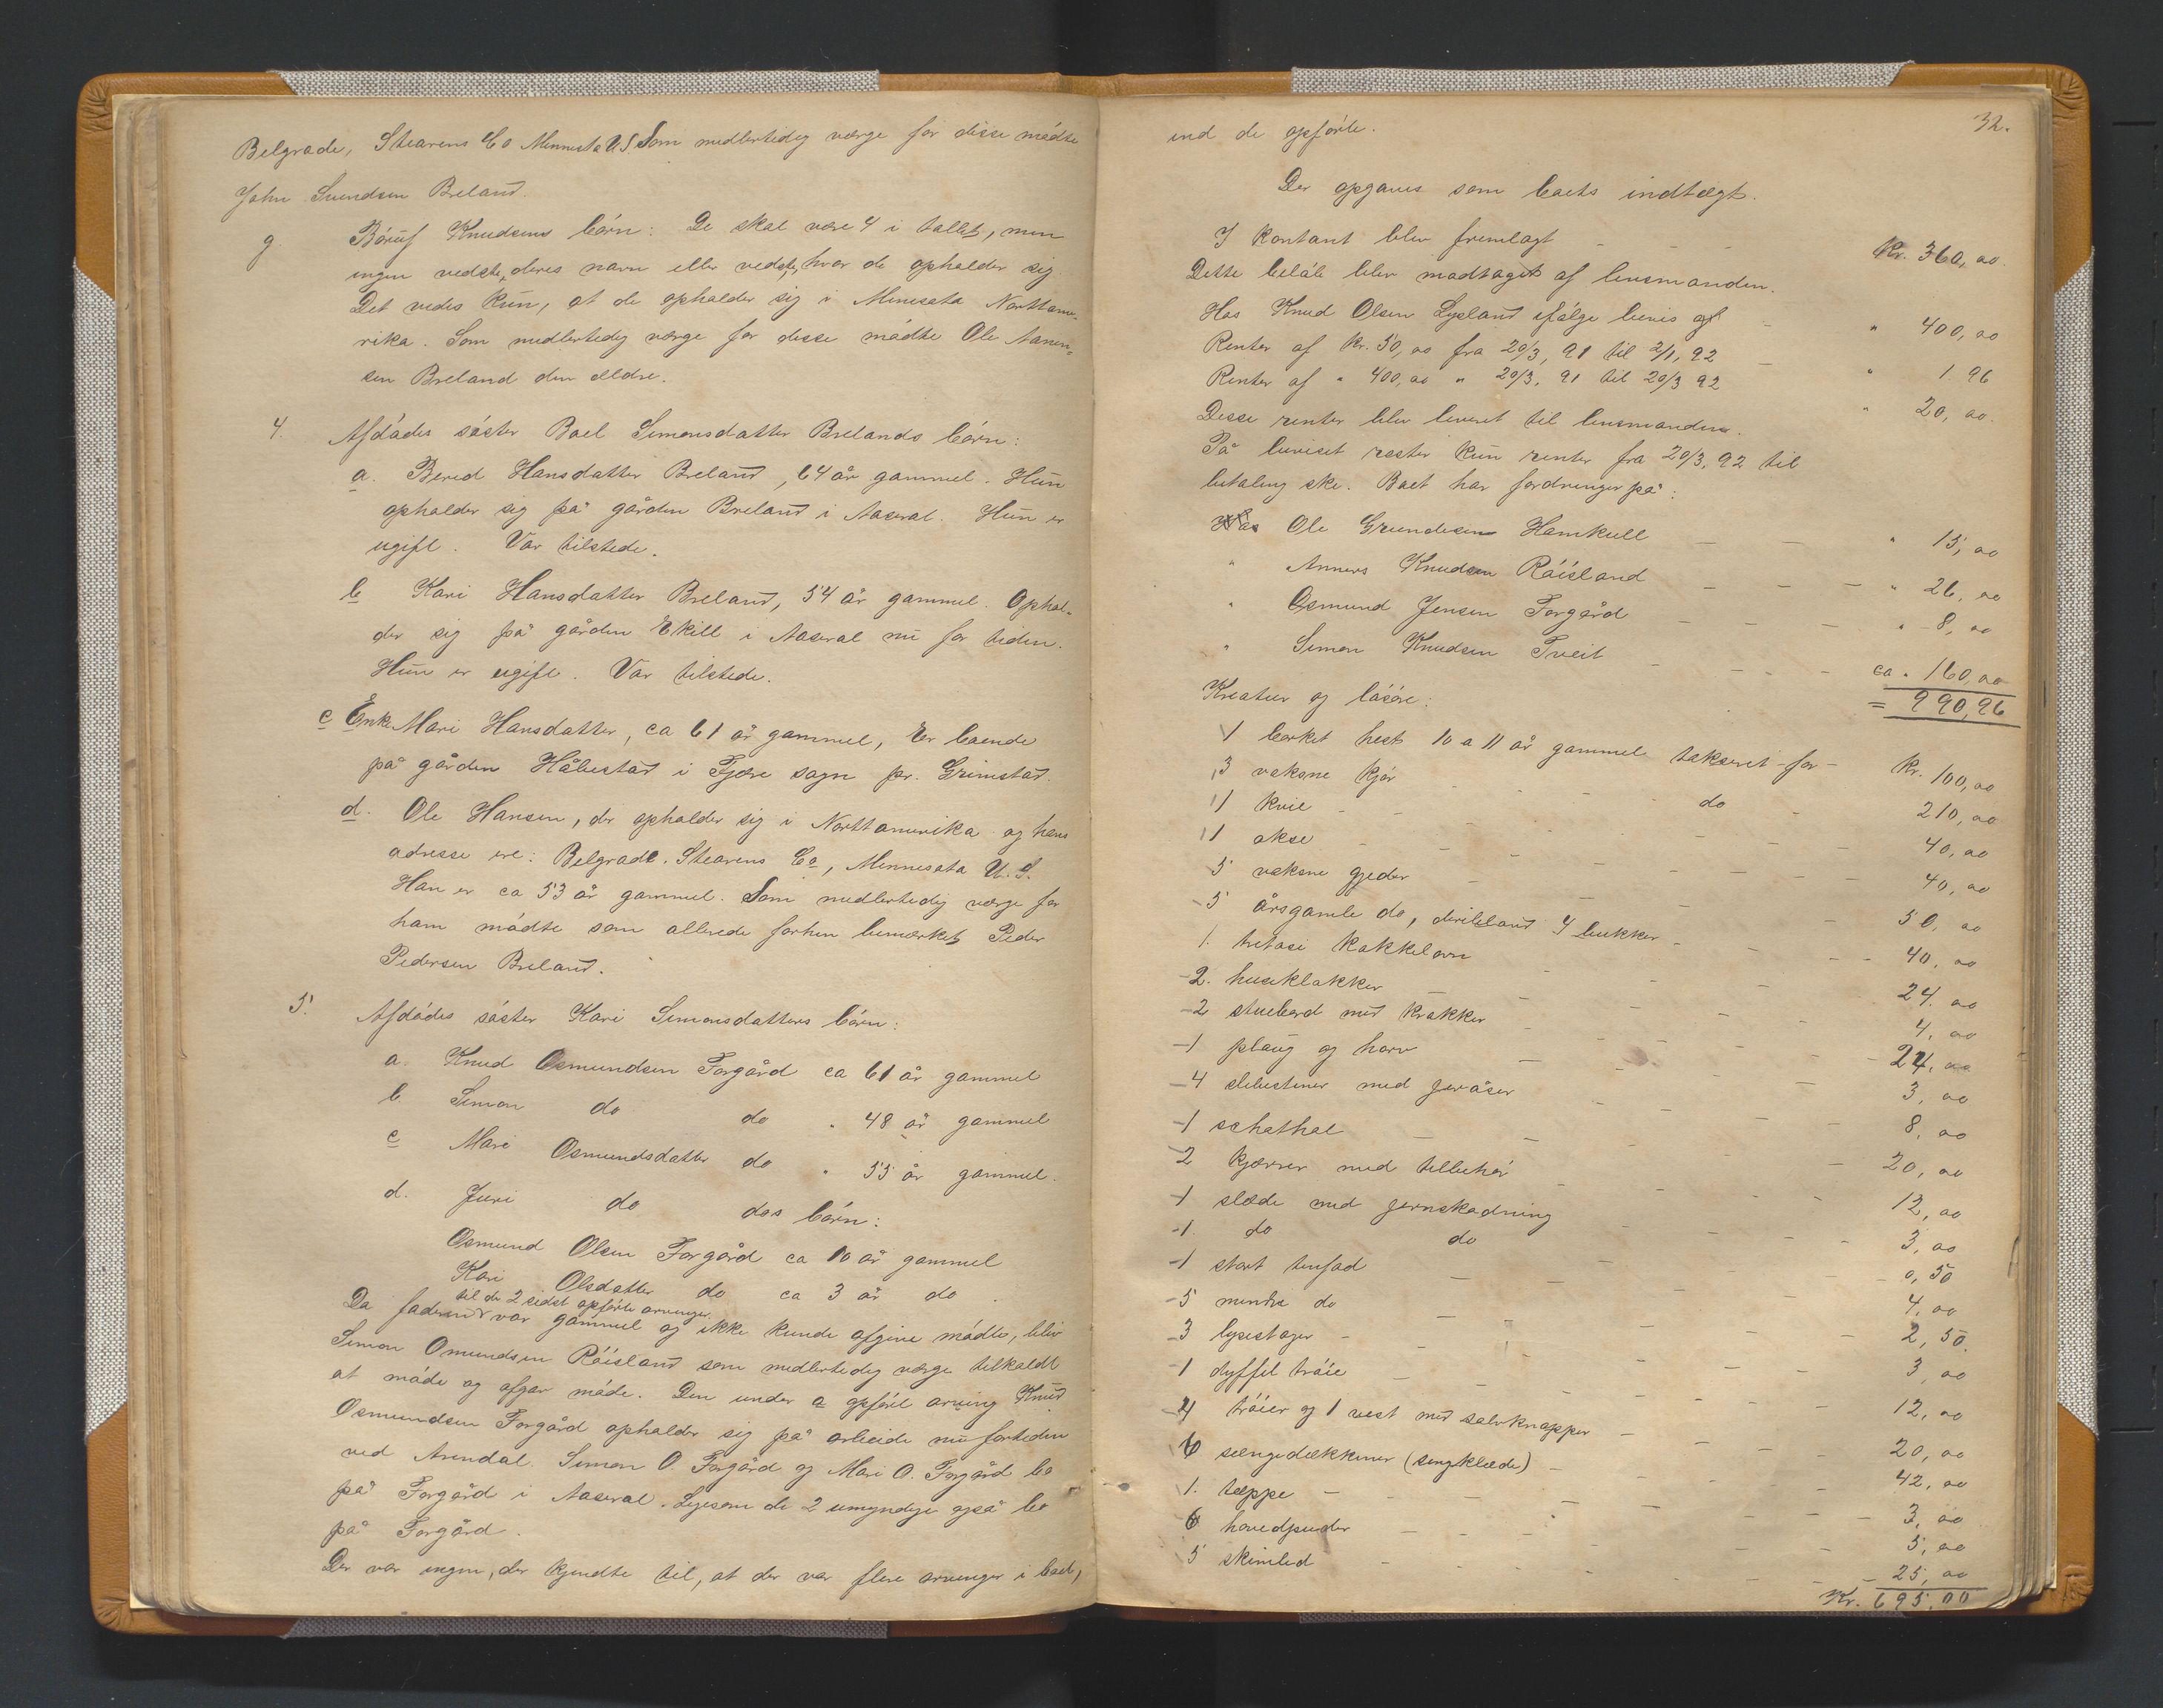 Belgrade, Stearens Co Minnesta U.S Som midlertidig værge for disse mödte
John Svendsen Breland.
g. Böruf Knudsens börn: De skal være 4 i tallet, men
ingen vedste, deres navn eller vedste, hvor de opholder sig
Det vedes kun, at de opholder sig i Minesota Norttame-
rika. Som midlertidig værge for disse mödte Ole Aanen-
sen Breland den ældre.
4. Afdödes söster Boel Simonsdatter Brelands börn:
a. Bered Hansdatter Breland, 64 år gammel. Hun
opholder sig på gården Breland i Aaseral. Hun er
ugift. Var tilstede.
b Kari Hansdatter Breland, 54 år gammel. Ophol-
der sig på gården Ekill i Aaseral nu for tiden.
Hun er ugift. Var tilstede.
c Enke Mari Hansdatter, ca 61 år gammel, Er boende
på gården Håbestad i Fjære sogn pr. Grimstad.
d. Ole Hansen, der opholder sig i Norttamerika og hans
adresse ere: Belgrade. Stearens Co, Minnesota U.S.
Han er ca 53 år gammel. Som midlertidig værge for
ham mödte som allerede forhen bemærket Peder
Pedersen Breland.
5. Afdödes söster Kari Simonsdatters börn:
a. Knud Osmundsen Forgård ca 61 år gammel
b Simon do do " 48 år gammel
c Mari Osmundsdatter do " 55 år gammel.
d. Juri do dos börn:
Osmund Olsen Forgård ca 10 år gammel
Kari Olsdatter do ca 3 år do
til de 2 sidst opförte arvinger
Da faderen var gammel og ikke kunde afgive mödte, blev
Simon Omundsen Röisland som midlertidig værge tilkaldt
at möde og afgav möde. Den under a opfört arving Knud
Osmundsen Forgård opholder sig på arbeide nu fortiden
ved Arendal. Simon O. Forgård og Mari O. Forgård bo
på Forgård i Aaseral. Ligesom de 2 umyndige også bo
på Forgård.
Der var ingen, der kjendte til, at der var flere arvinger i boet,
32.
end de opförte.
Der opgaves som boets indtægt.
I kontant blev fremlagt - - - Kr. 360,00.
Dette belöb blev modtaget af lensmanden.
Hos Knud Olsen Lysland ifölge bevis af - " 400,00
Renter af Kr. 50,00 fra 20/3, 91 til 2/1, 92 - " 1 96
Renter af " 400,00 " 20/3, 91 til 20/3 92 " 20,00.
Disse renter blev leveret til lensmanden.
På beviset rester kun renter fra 20/3, 92 til
betaling ske. Boet har fordringer på:
Hos Ole Grundesen Hamkull - - " 15,00
" Anners Knudsen Röisland - - - " 26,00
" Osmund Jensen Forgård - - - " 8,00
" Simon Knudsen Tveit - - - - ca " 160,00
= 990,96
Kreatur og lösöre:
1 borket hest 10 a 11 år gammel takseret for - Kr. 100,00
3 voksne kjör - - - do - 210,00
1 kvie - - - - - - 40,00
1 okse - - - - - - 40,00
5 voksne gjeder - - - - 50,00
5 årsgamle do, deriblant 4 bukker - - - 40,00
1. tretasi kakkelovn - - - 24,00
2. huseklokker - - - - 4,00
2 stuebord med krakker - - - 24,00
1 plaug og horv - - - - 3,00
4 slibestener med jernåser - - - 8,00
1 schathol - - - - 20,00
2 kjærrer med tilbehör - - - 12,00
1 slæde med jernskodning - - - 3,00
1. do do - - - 0,50
1 stort tenfad - - - - 4,00
5 mindre do - - - - 2,50.
3 lysestager - - - - 3,00
1 dyffel tröie - - - - 12,00
4 tröier og 1 vest med sølvknapper - - - 20,00
6 sengedækkener (sengklæde) - - - 42,00
1. tæppe - - - - 3,00
6 hovedpuder - - - - 5,00
5 skinled - - - - 25,00
Kr. 695,00